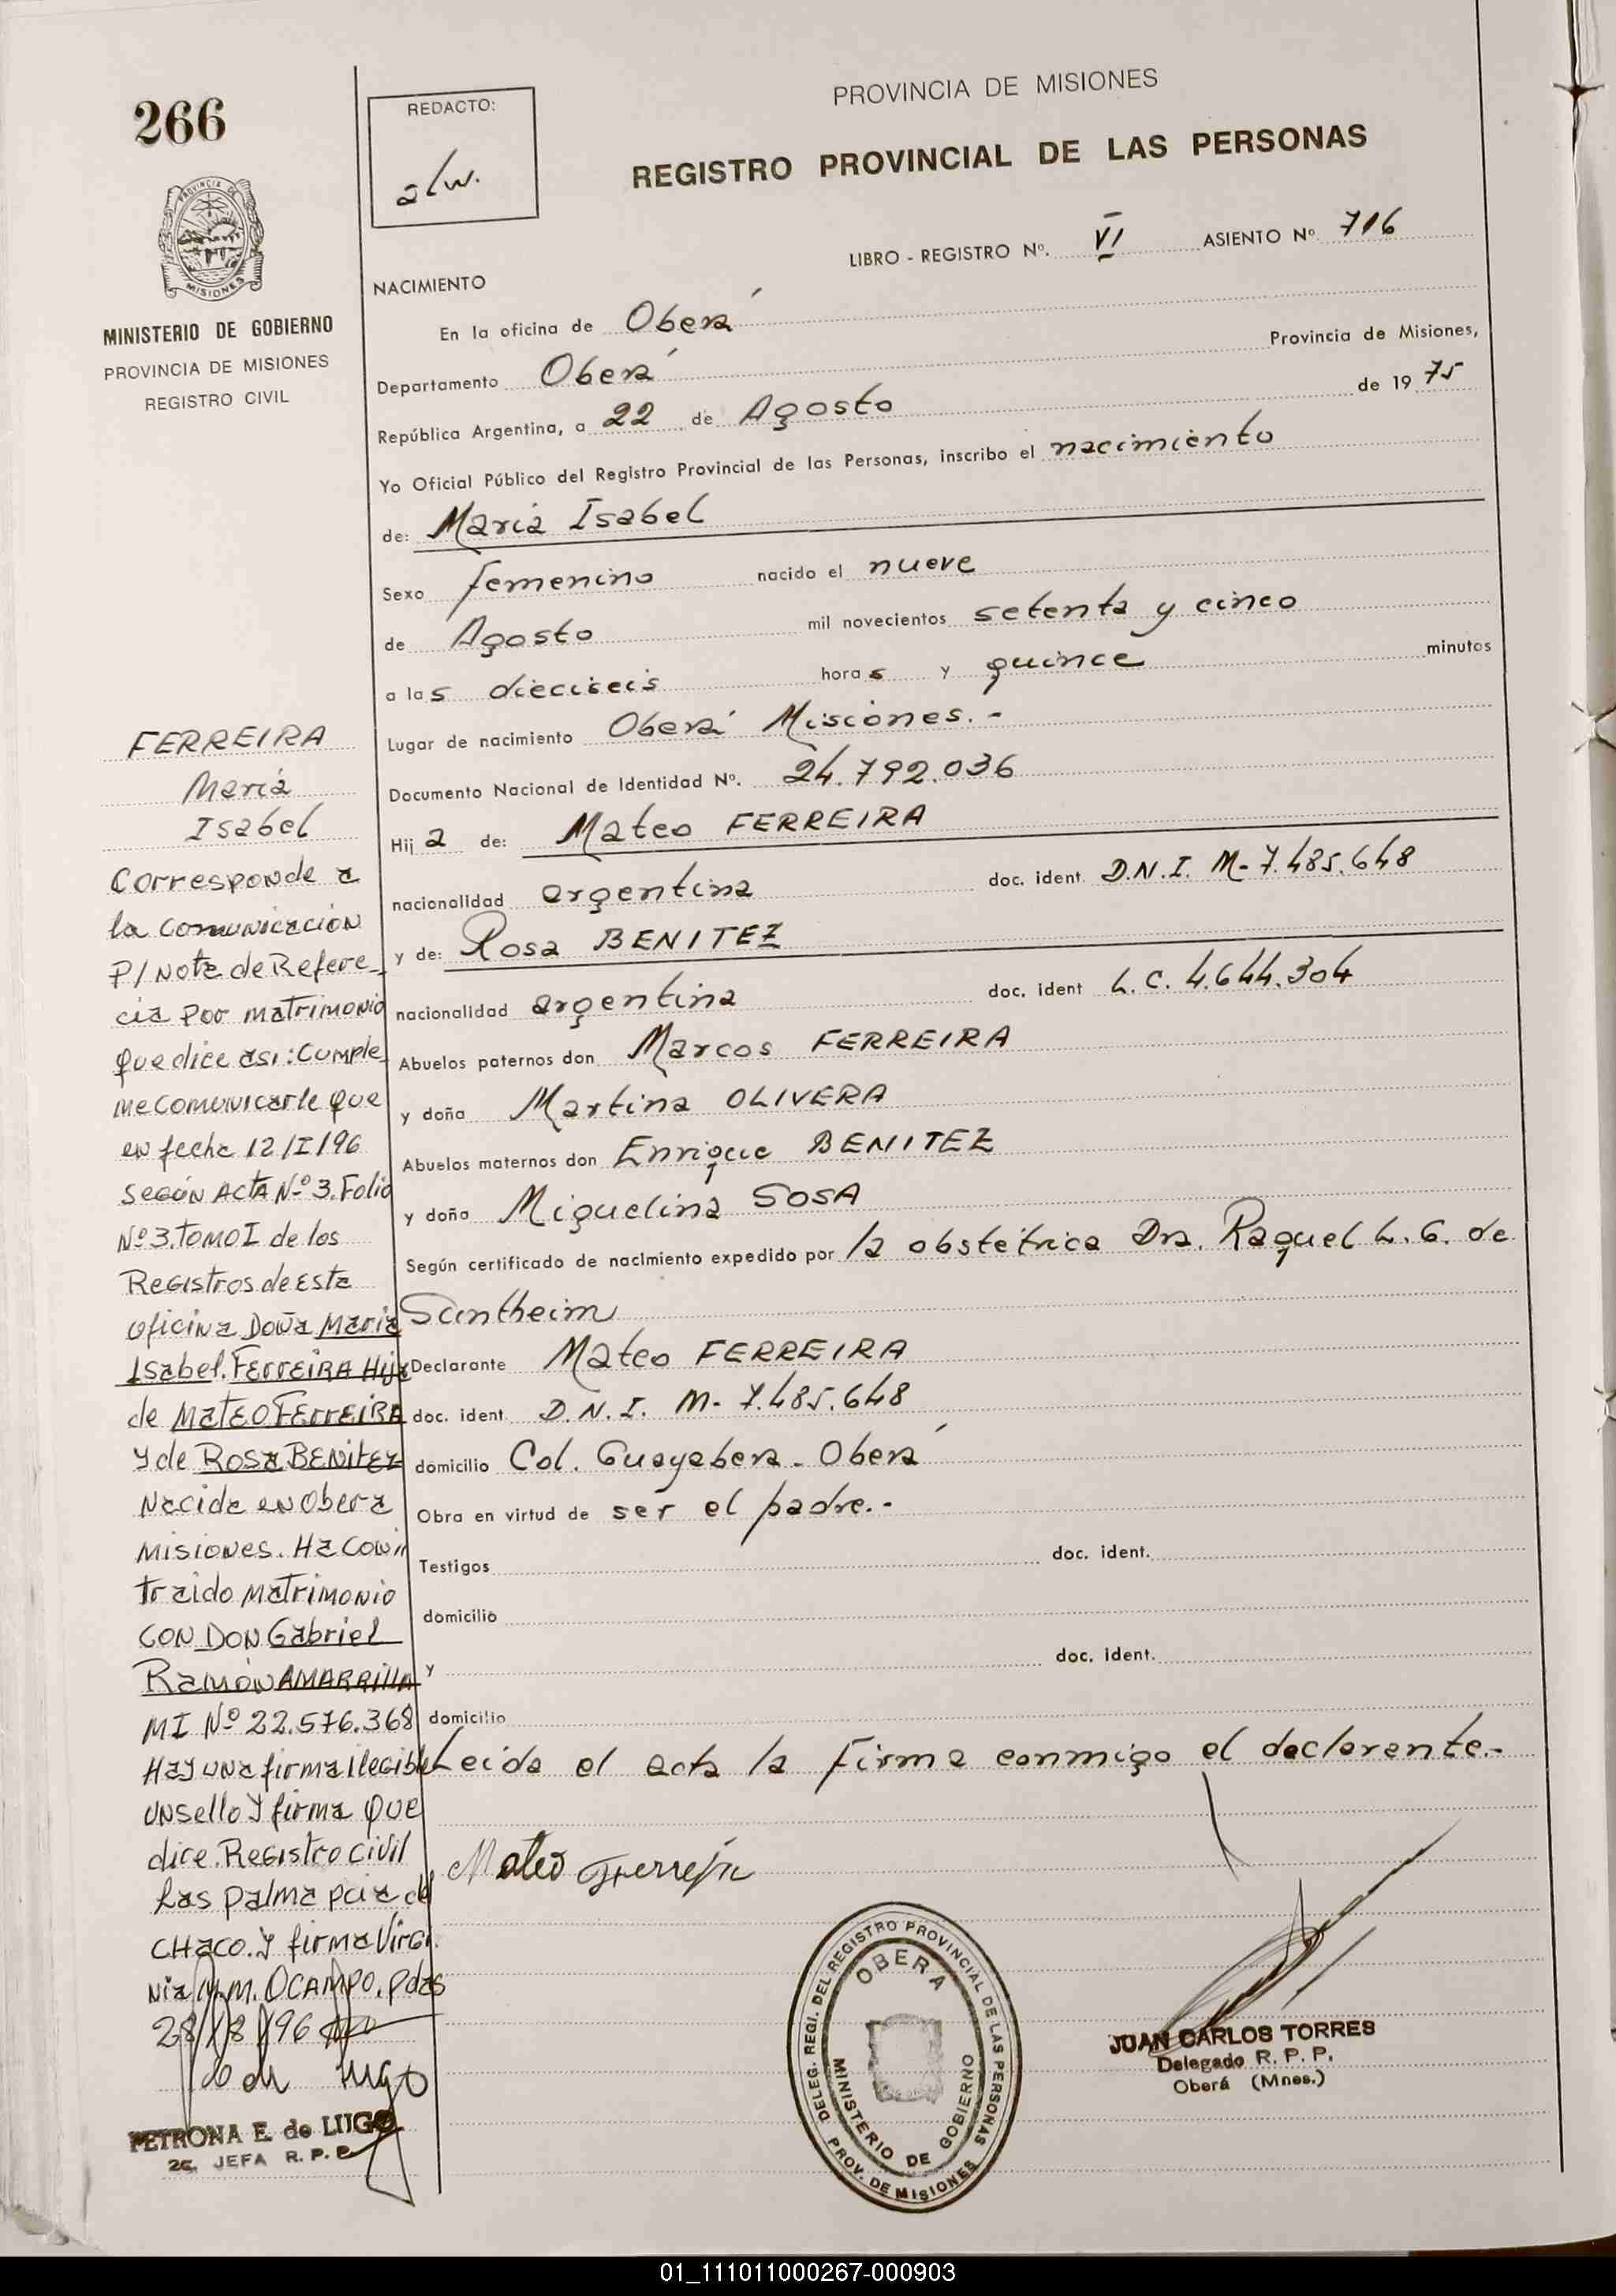 266
REDACTO:
a/w.
PROVINCIA DE MISIONES
REGISTRO PROVINCIAL DE LAS PERSONAS
LIBRO - REGISTRO Nº. VI ASIENTO Nº 716
PROVINCIA DE MISIONES
MINISTERIO DE GOBIERNO
PROVINCIA DE MISIONES
REGISTRO CIVIL
NACIMIENTO
En la oficina de Oberá
Departamento Oberá Provincia de Misiones,
República Argentina, a 22 de Agosto de 19 75
Yo Oficial Público del Registro Provincial de las Personas, inscribo el nacimiento
de: María Isabel
Sexo femenino nacido el nueve
de Agosto mil novecientos setenta y cinco
a las dieciseis horas y quince minutos
Lugar de nacimiento Oberá Misiones.-
Documento Nacional de Identidad Nº. 24.792.036
Hija de: Mateo FERREIRA
nacionalidad argentina doc. ident. D.N.I. M-7.485.648
y de: Rosa BENITEZ
nacionalidad argentina doc. ident L.C. 4.644.304
Abuelos paternos don Marcos FERREIRA
y doña Martina OLIVERA
Abuelos maternos don Enrique BENITEZ
y doña Miguelina SOSA
Según certificado de nacimiento expedido por la obstétrica Dra. Raquel L. G. de
Santheim
Declarante Mateo FERREIRA
doc. ident. D.N.I. M- 7.485.648
domicilio Col. Guayabera - Oberá
Obra en virtud de ser el padre.-
Testigos doc. ident.
domicilio
y doc. ident.
domicilio
Leida el acta la firma conmigo el declarante.-
Mateo Ferreira
FERREIRA
María
Isabel
Corresponde a
la comunicación
P/Nota de Refere_
cia por matrimonio
que dice asi: Cumple_
me comunicarle que
en fecha 12/I/96
según Acta Nº 3. Folio
Nº 3. TOMO I de los
Registros de esta
oficina Doña Maria
Isabel. FERREIRA Hija
de MATEO FERREIRA
y de ROSA BENITEZ
Nacida en Obera
Misiones. Ha con
traido matrimonio
CON DON Gabriel
Ramón AMARRILLA
MI Nº 22.576.368
Hay una firma ilegible
un sello y firma que
dice. Registro civil
Las palma pcia del
CHACO. y firma Virgi.
nia M.M. OCAMPO. Pdas
28/18/96
de Lugo
PETRONA E. de LUGO
2a. JEFA R. P. P.
DELEG. REGI. DEL REGISTRO PROVINCIAL DE LAS PERSONAS
OBERA
MINISTERIO DE GOBIERNO
PROV. DE MISIONES
JUAN CARLOS TORRES
Delegado R. P. P.
Oberá (Mnes.)
01_111011000267-000903